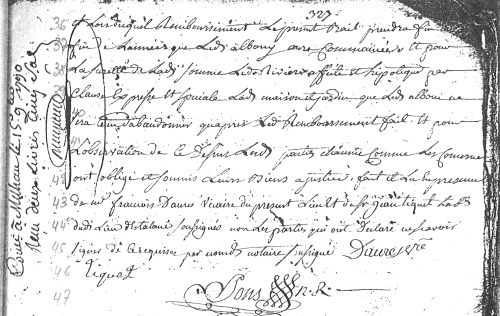 327
36 et Lors duquel Remboursement Le present Bail prendra fin
37 fin de L'année que Led. albouy aura Commancée et pour
38 La sureté de Lad. somme Led. Riviere affecte et hipoteque par
39 Clause Expresse et speciale Lad. maison et jardin que Led. albouy ne
40 sera tenu d'abandonner qu'après Led. Remboursement fait et pour
41 L'observation de ce Dessus Les d. parties chacune Comme Les Concerne
42 ont obligé et soumis Leurs Biens a justice, fait et Lu En presence
43 de Mr. francois Daures Vicaire du present Lieu et de Sr. Jean
44 dud. Lieu signés non Les parties qui ont Declaré ne scavoir
45 signer de ce requises par nous notaire soussigné Daures ptre
46 tiquet
47
Pons N. R.
Conllé a Milhau le 15e 9bre 1790
Reçu deux livres